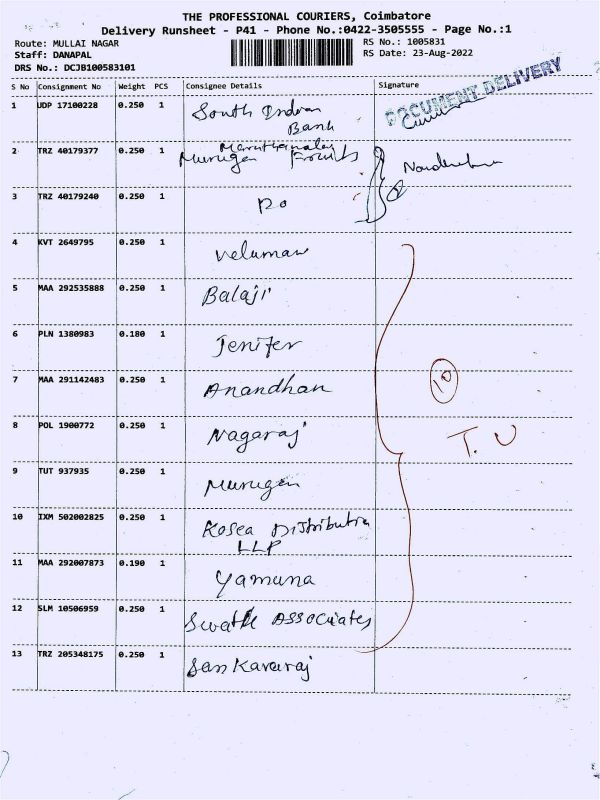 THE PROFESSIONAL COURIERS, Coimbatore
Delivery Runsheet - P41 - Phone No.:0422-3505555 - Page No.:1
Route: MULLAI NAGAR
Staff: DANAPAL
DRS No.: DCJB100583101
RS No.: 1005831
RS Date: 23-Aug-2022
S No Consignment No Weight PCS Consignee Details Signature
DOCUMENT DELIVERY
1 UDP 17100228 0.250 1 South Indian
Bank
2 TRZ 40179377 0.250 1 Maruthamalai
Murugan Fruits
3 TRZ 40179240 0.250 1 Do
4 KVT 2649795 0.250 1 Velumani
5 MAA 292535888 0.250 1 Balaji
6 PLN 1380983 0.180 1 Jenifer
7 MAA 291142483 0.250 1 Anandhan
10
8 POL 1900772 0.250 1 Nagaraj
T. U
9 TUT 937935 0.250 1 Murugan
10 IXM 502002825 0.250 1 Kosea Distribution
LLP
11 MAA 292007873 0.190 1 Yamuna
12 SLM 10506959 0.250 1 Swathi Associates
13 TRZ 205348175 0.250 1 Sankararaj